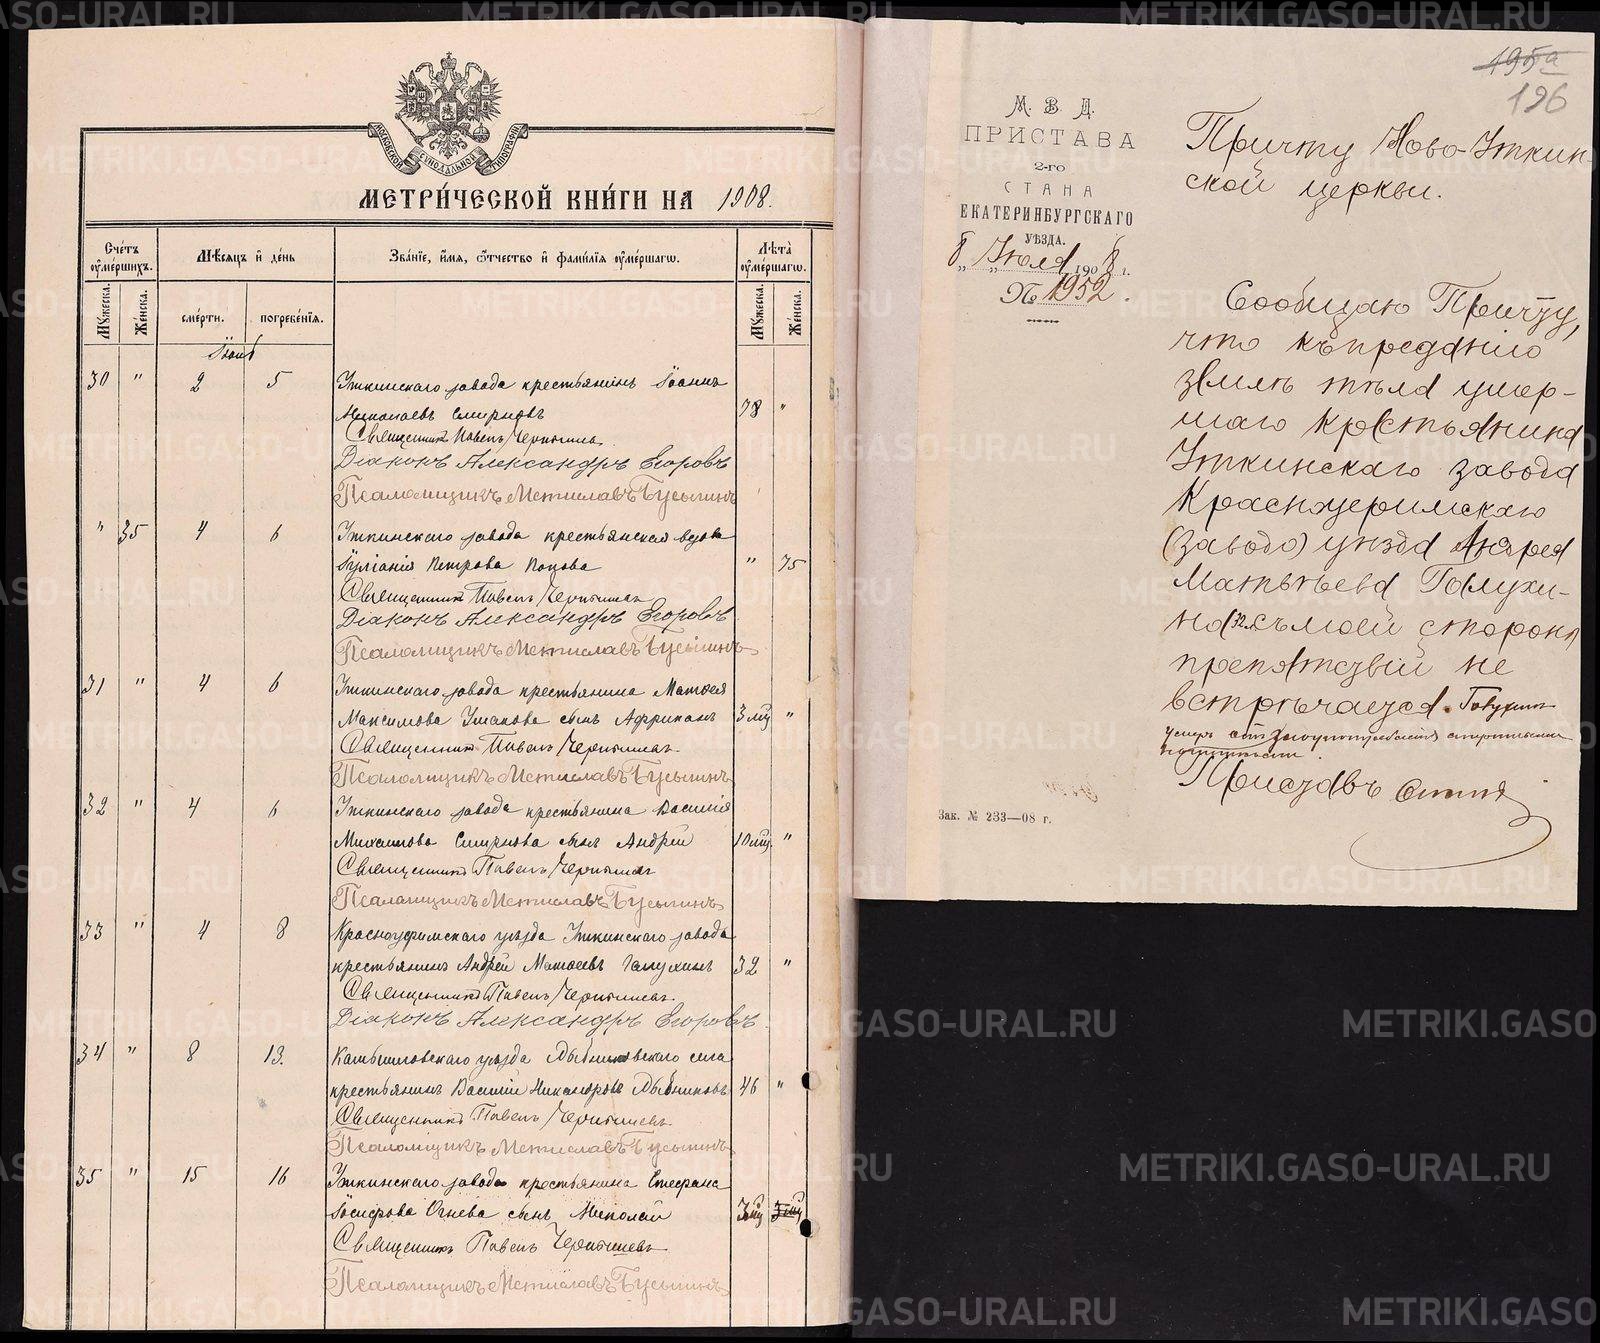 МОСКОВСКОЙ СѴНОДАЛЬНОЙ ТИПОГРАФІИ
МЕТРИ́ЧЕСКОЙ КНИ́ГИ НА 1908.
Сче́тъ ᲂу҆ме́ршихъ.
Мѣ́сяцъ и҆ де́нь
Зва́нїе, и҆́мя, ѻ҆́тчество и҆ фами́лїя ᲂу҆ме́ршагѡ.
Лѣ́та ᲂу҆ме́ршагѡ.
Мꙋ́жеска.
Же́нска.
сме́рти.
погребе́нїя.
Мꙋ́жеска.
Же́нска.
Іюнь
30 " 2 5 Уткинскаго завода крестьянинъ Іоаннъ
Николаевъ Смирновъ 78 "
Священникъ Павелъ Чернышевъ
Діаконъ Александръ Егоровъ
Псаломщикъ Мстиславъ Бусыгинъ
" 35 4 6 Уткинскаго завода крестьянская вдова
Іуліанія Петрова Попова " 75
Священникъ Павелъ Чернышевъ
Діаконъ Александръ Егоровъ
Псаломщикъ Мстиславъ Бусыгинъ
31 " 4 6 Уткинскаго завода крестьянина Матѳея
Максимова Ушакова сынъ Африканъ 3 мц "
Священникъ Павелъ Чернышевъ
Псаломщикъ Мстиславъ Бусыгинъ
32 " 4 6 Уткинскаго завода крестьянина Василія
Михаилова Смирнова сынъ Андрей 10 мц "
Священникъ Павелъ Чернышевъ
Псаломщикъ Мстиславъ Бусыгинъ
33 " 4 8 Красноуфимскаго уѣзда Уткинскаго завода
крестьянинъ Андрей Матѳеевъ Галухинъ 32 "
Священникъ Павелъ Чернышевъ
Діаконъ Александръ Егоровъ
34 " 8 13. Камышловскаго уѣзда села
крестьянинъ Василій Никандровъ 46 "
Священникъ Павелъ Чернышевъ
Псаломщикъ Мстиславъ Бусыгинъ
35 " 15 16 Уткинскаго завода крестьянина Стефана
Іосифова Огнева сынъ Николай 3 мц
Священникъ Павелъ Чернышевъ
Псаломщикъ Мстиславъ Бусыгинъ
195а
196
М. В. Д.
ПРИСТАВА
2-го
СТАНА
ЕКАТЕРИНБУРГСКАГО
УѢЗДА.
8 „ Іюля 1908 г.
№ 1952.
Зак. № 233—08 г.
Причту Ново-Уткин-
ской церкви.
Сообщаю Причту,
что къ преданію
землѣ тѣла умер-
шаго крестьянина
Уткинскаго завода
Красноуфимскаго
(завода) уѣзда Андрея
Матвѣева Галухи-
на 32 л. съ моей стороны
препятствій не
встрѣчается. Галухинъ
умеръ отъ злоупотребленія спиртными
напитками.
Приставъ